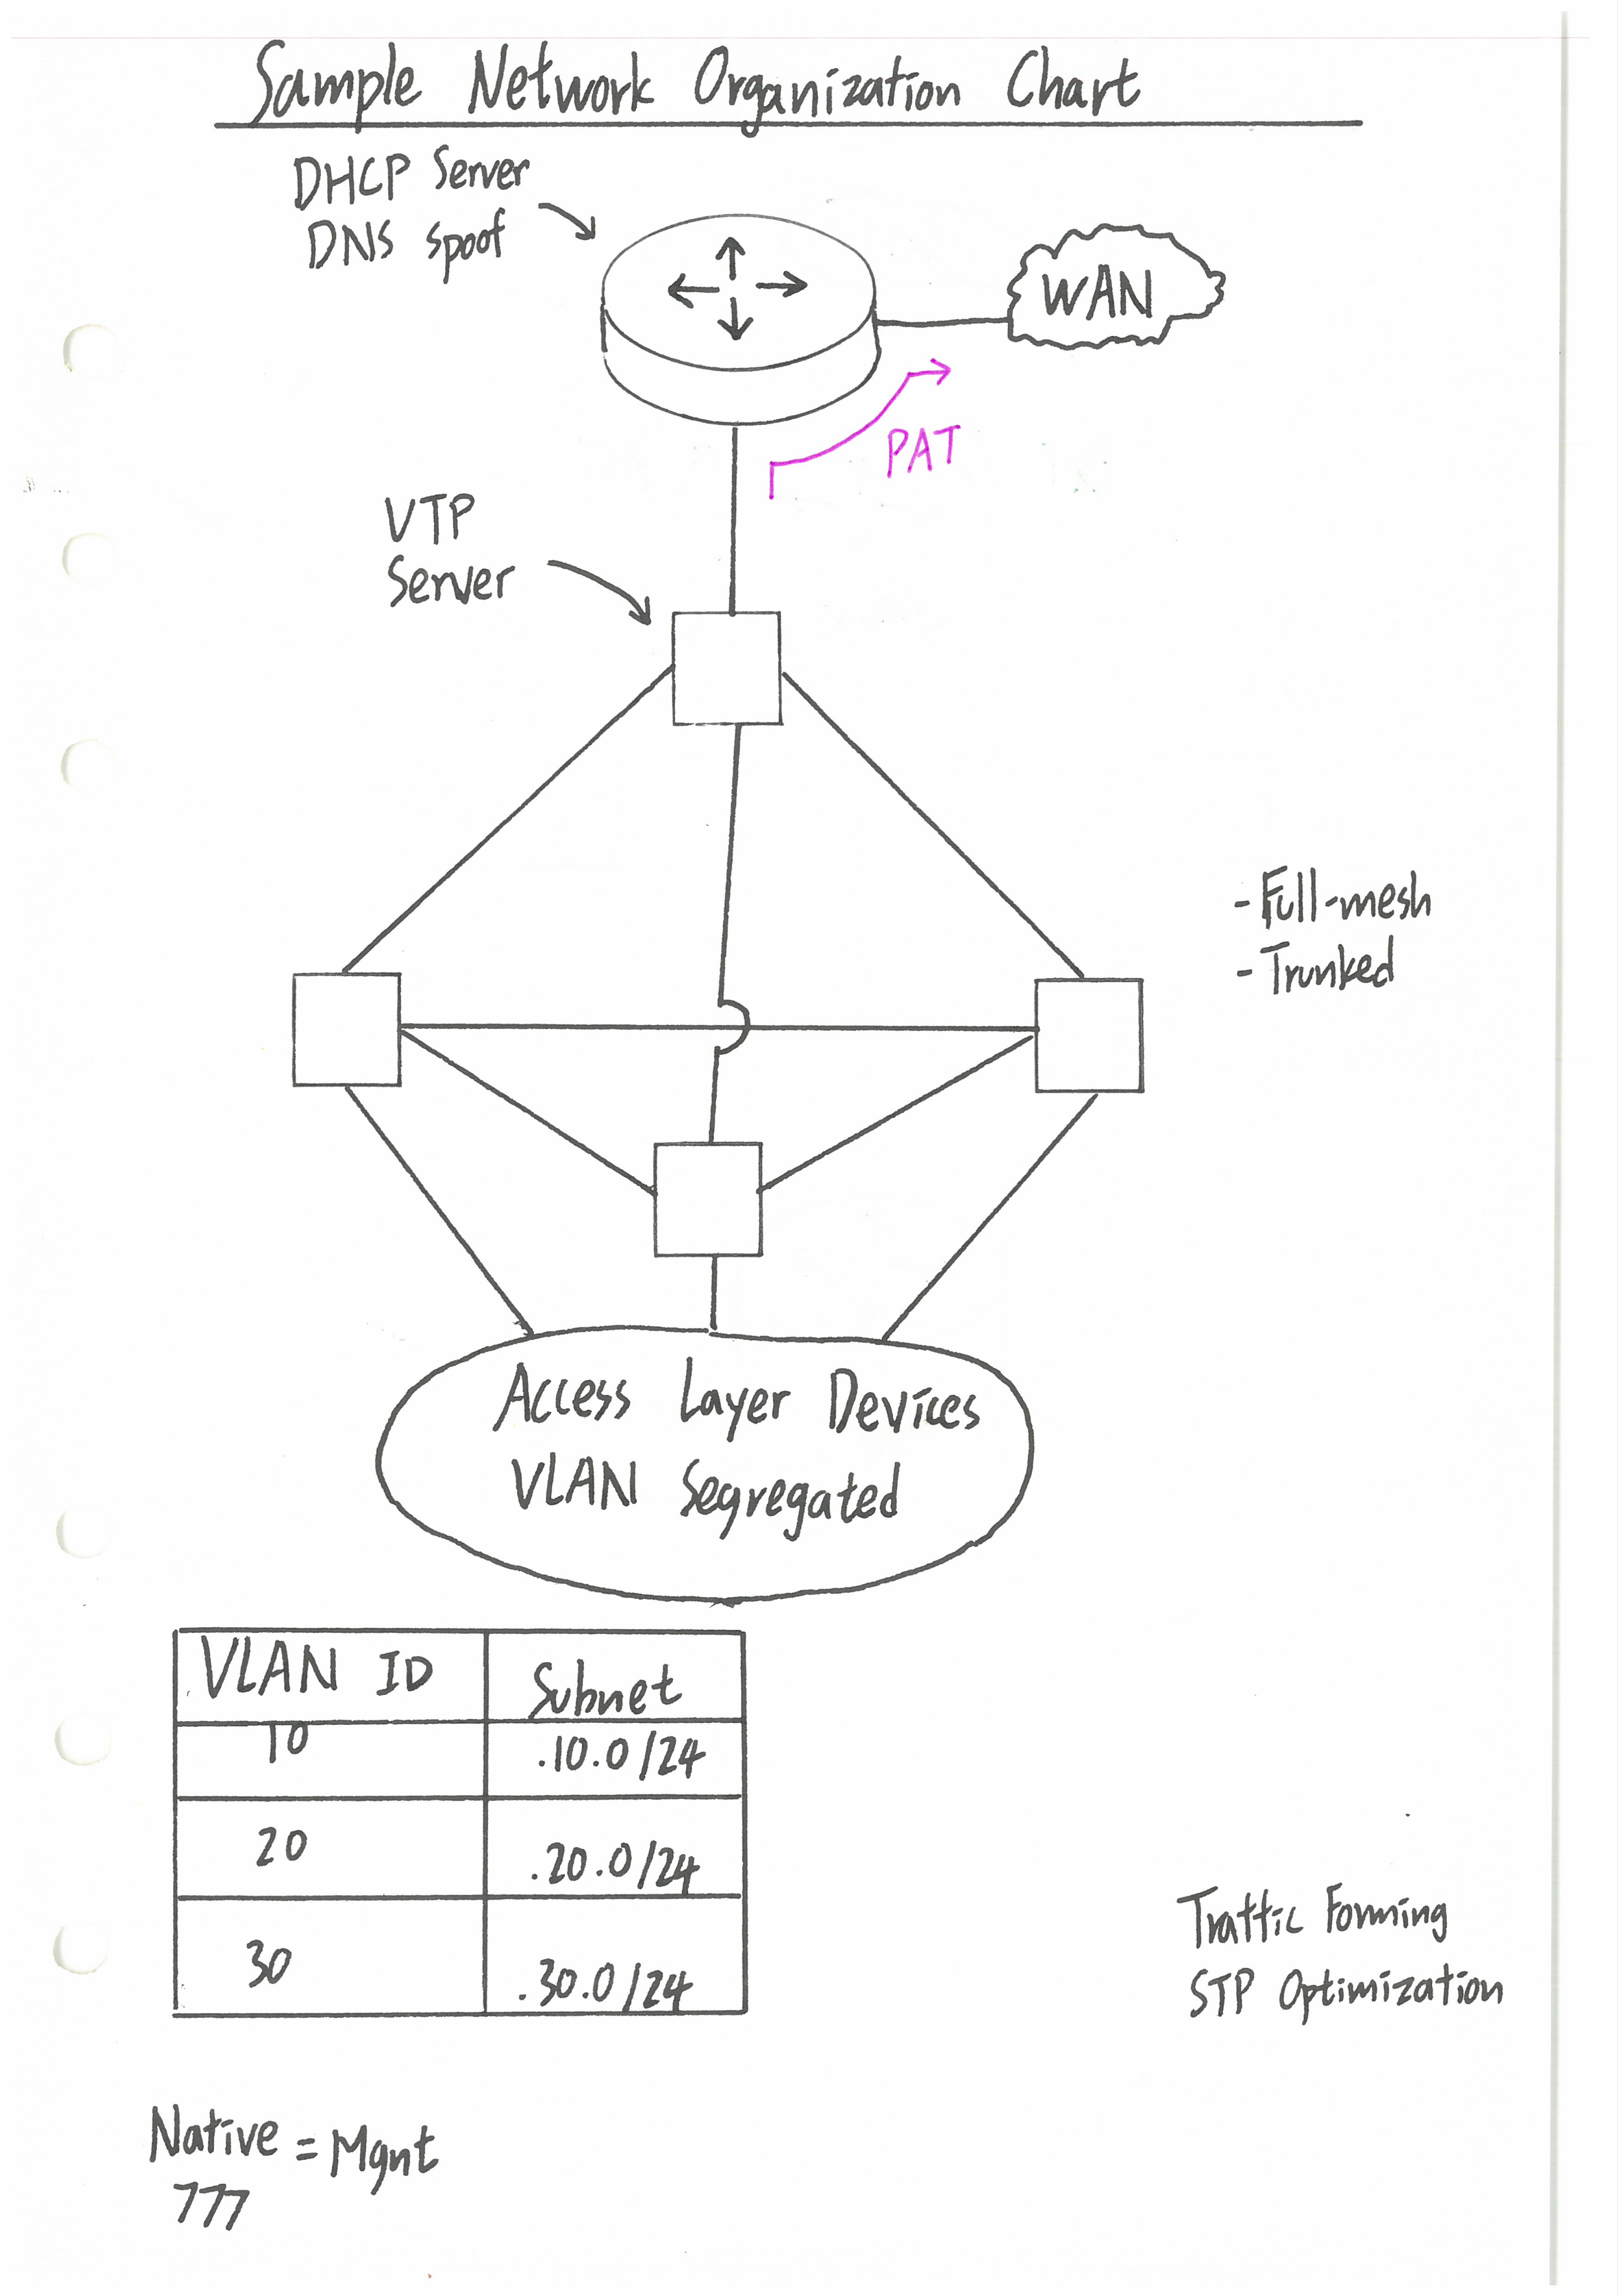 Sample Network Organization Chart
DHCP Server
DNS Spoof
WAN
PAT
VTP
Server
- Full-mesh
- Trunked
Access Layer Devices
VLAN Segregated
VLAN ID Subnet
10 .10.0/24
20 .20.0/24
30 .30.0/24
Traffic Forming
STP Optimization
Native = Mgnt
777